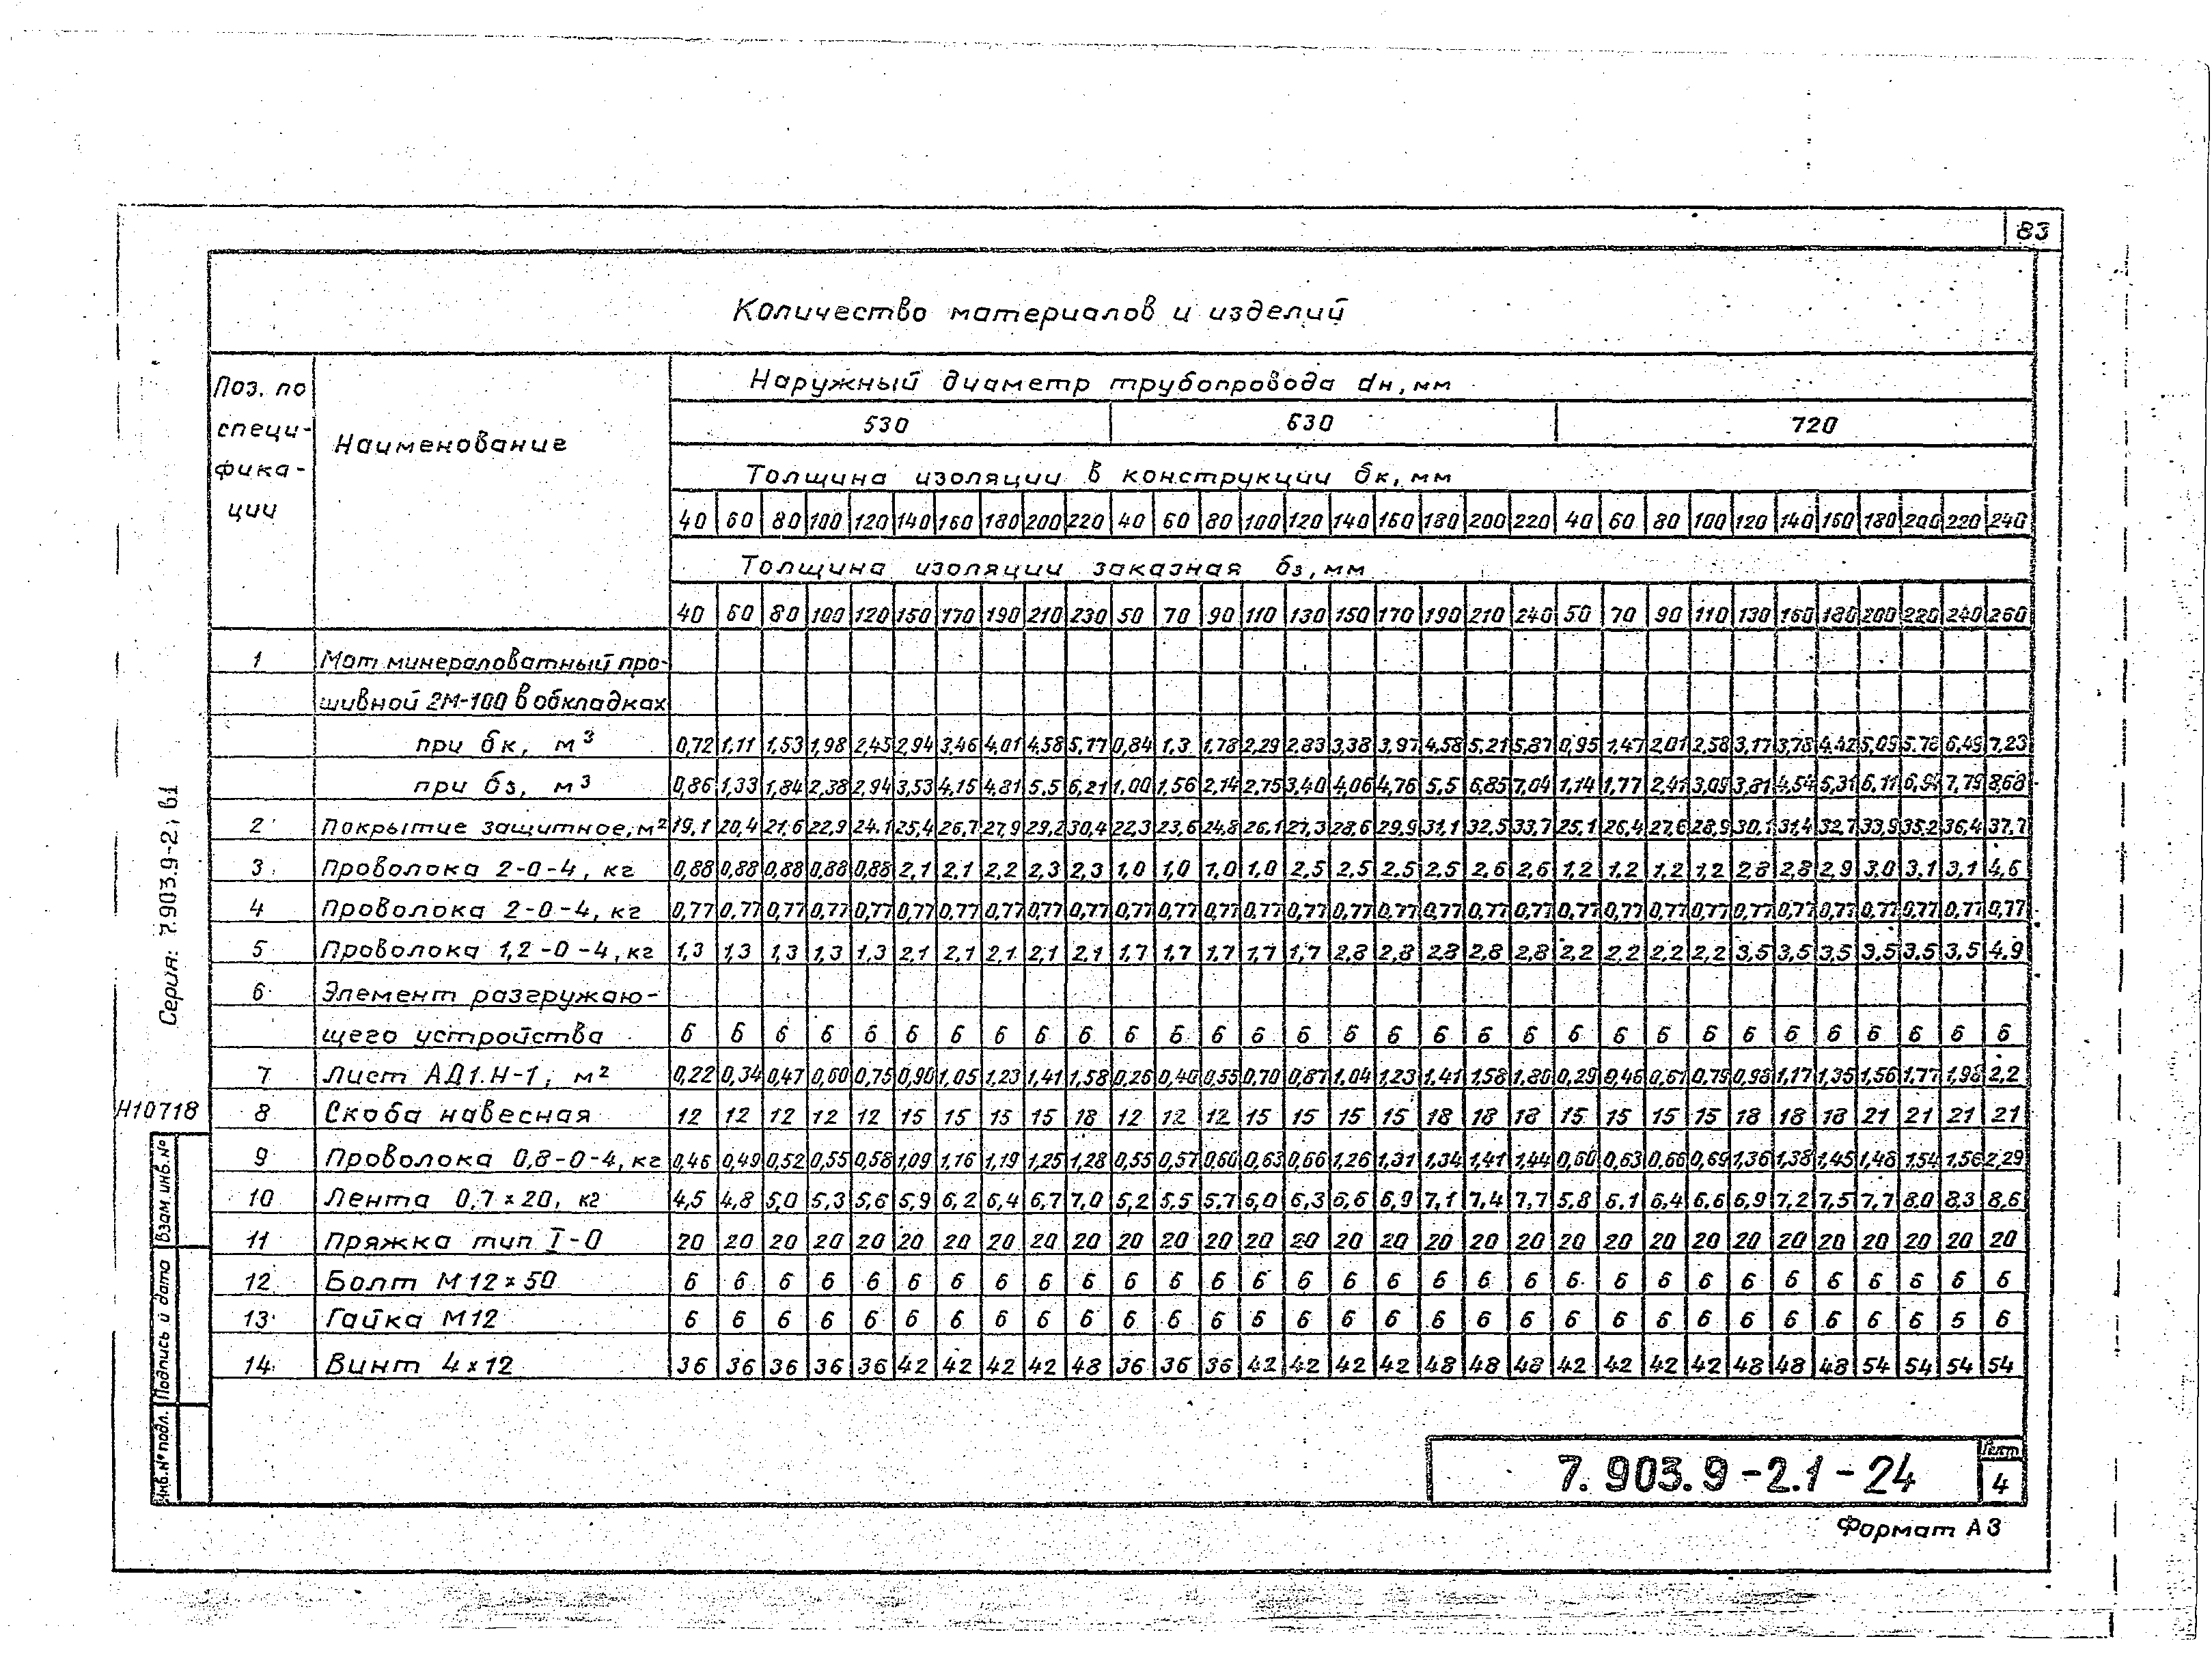 83
Количество материалов и изделий
Поз. по специ-фика-ции
Наименование
Наружный диаметр трубопровода dн, мм
530 630 720
Толщина изоляции в конструкции δк, мм
40 60 80 100 120 140 160 180 200 220 40 60 80 100 120 140 160 180 200 220 40 60 80 100 120 140 160 180 200 220 240
Толщина изоляции заказная δз, мм
40 60 80 100 120 150 170 190 210 230 50 70 90 110 130 150 170 190 210 240 50 70 90 110 130 160 180 200 220 240 260
1 Мат минераловатный про-
шивной 2М-100 в обкладках
при δк, м³ 0,72 1,11 1,53 1,98 2,45 2,94 3,46 4,01 4,58 5,17 0,84 1,3 1,78 2,29 2,83 3,38 3,97 4,58 5,21 5,87 0,95 1,47 2,01 2,58 3,17 3,78 4,42 5,09 5,76 6,49 7,23
при δз, м³ 0,86 1,33 1,84 2,38 2,94 3,53 4,15 4,81 5,5 6,21 1,00 1,56 2,14 2,75 3,40 4,06 4,76 5,5 6,85 7,04 1,14 1,77 2,41 3,09 3,81 4,54 5,31 6,11 6,94 7,79 8,68
2 Покрытие защитное, м² 19,1 20,4 21,6 22,9 24,1 25,4 26,7 27,9 29,2 30,4 22,3 23,6 24,8 26,1 27,3 28,6 29,9 31,1 32,5 33,7 25,1 26,4 27,6 28,9 30,1 31,4 32,7 33,9 35,2 36,4 37,7
3 Проволока 2-0-4, кг 0,88 0,88 0,88 0,88 0,88 2,1 2,1 2,2 2,3 2,3 1,0 1,0 1,0 1,0 2,5 2,5 2,5 2,5 2,6 2,6 1,2 1,2 1,2 1,2 2,8 2,8 2,9 3,0 3,1 3,1 4,6
4 Проволока 2-0-4, кг 0,77 0,77 0,77 0,77 0,77 0,77 0,77 0,77 0,77 0,77 0,77 0,77 0,77 0,77 0,77 0,77 0,77 0,77 0,77 0,77 0,77 0,77 0,77 0,77 0,77 0,77 0,77 0,77 0,77 0,77 0,77
5 Проволока 1,2-0-4, кг 1,3 1,3 1,3 1,3 1,3 2,1 2,1 2,1 2,1 2,1 1,7 1,7 1,7 1,7 1,7 2,8 2,8 2,8 2,8 2,8 2,2 2,2 2,2 2,2 3,5 3,5 3,5 3,5 3,5 3,5 4,9
6 Элемент разгружаю-
щего устройства 6 6 6 6 6 6 6 6 6 6 6 6 6 6 6 6 6 6 6 6 6 6 6 6 6 6 6 6 6 6 6
7 Лист АД1.Н-1, м² 0,22 0,34 0,47 0,60 0,75 0,90 1,05 1,23 1,41 1,58 0,26 0,40 0,55 0,70 0,87 1,04 1,23 1,41 1,58 1,80 0,29 0,46 0,61 0,79 0,98 1,17 1,35 1,56 1,77 1,98 2,2
8 Скоба навесная 12 12 12 12 12 15 15 15 15 18 12 12 12 15 15 15 15 18 18 18 15 15 15 15 18 18 18 21 21 21 21
9 Проволока 0,8-0-4, кг 0,46 0,49 0,52 0,55 0,58 1,09 1,16 1,19 1,25 1,28 0,55 0,57 0,60 0,63 0,66 1,26 1,31 1,34 1,41 1,44 0,60 0,63 0,66 0,69 1,36 1,38 1,45 1,48 1,54 1,56 2,29
10 Лента 0,7×20, кг 4,5 4,8 5,0 5,3 5,6 5,9 6,2 6,4 6,7 7,0 5,2 5,5 5,7 6,0 6,3 6,6 6,9 7,1 7,4 7,7 5,8 6,1 6,4 6,6 6,9 7,2 7,5 7,7 8,0 8,3 8,6
11 Пряжка тип I-0 20 20 20 20 20 20 20 20 20 20 20 20 20 20 20 20 20 20 20 20 20 20 20 20 20 20 20 20 20 20 20
12 Болт М12×50 6 6 6 6 6 6 6 6 6 6 6 6 6 6 6 6 6 6 6 6 6 6 6 6 6 6 6 6 6 6 6
13 Гайка М12 6 6 6 6 6 6 6 6 6 6 6 6 6 6 6 6 6 6 6 6 6 6 6 6 6 6 6 6 6 6 6
14 Винт 4×12 36 36 36 36 36 42 42 42 42 48 36 36 36 42 42 42 42 48 48 48 42 42 42 42 48 48 48 54 54 54 54
Серия: 7.903.9-2, в1
Н10718
Взам инв. №
Подпись и дата
Инв. № подл.
7.903.9-2.1-24
4
Формат А3